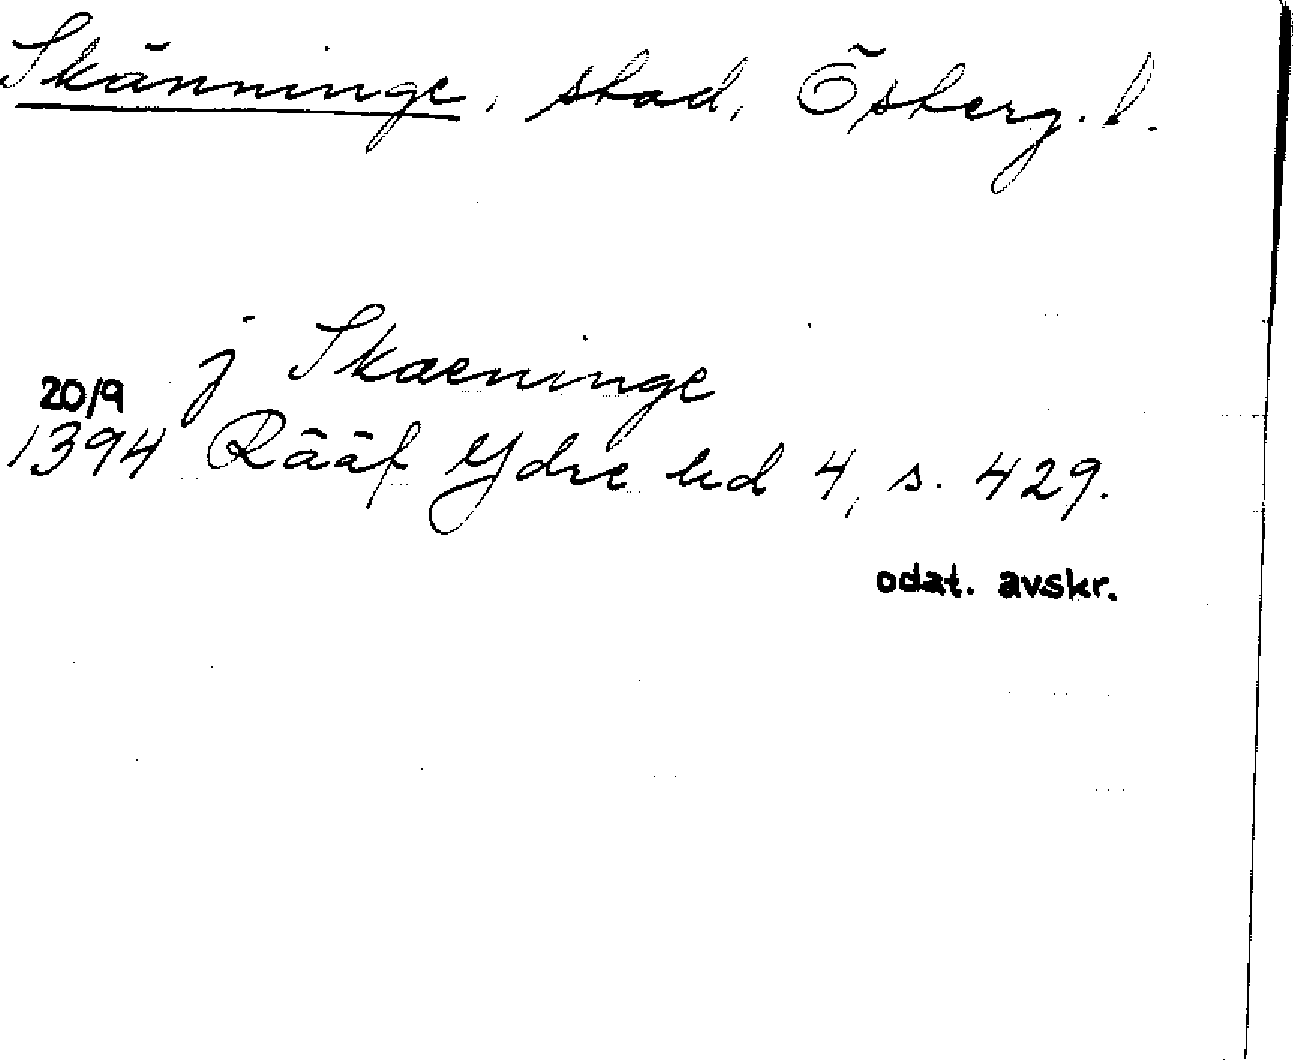 Skänninge, stad, Österg. l.
j Skaeninge
20/9
1394 Rääf Ydre bd 4, s. 429.
odat. avskr.